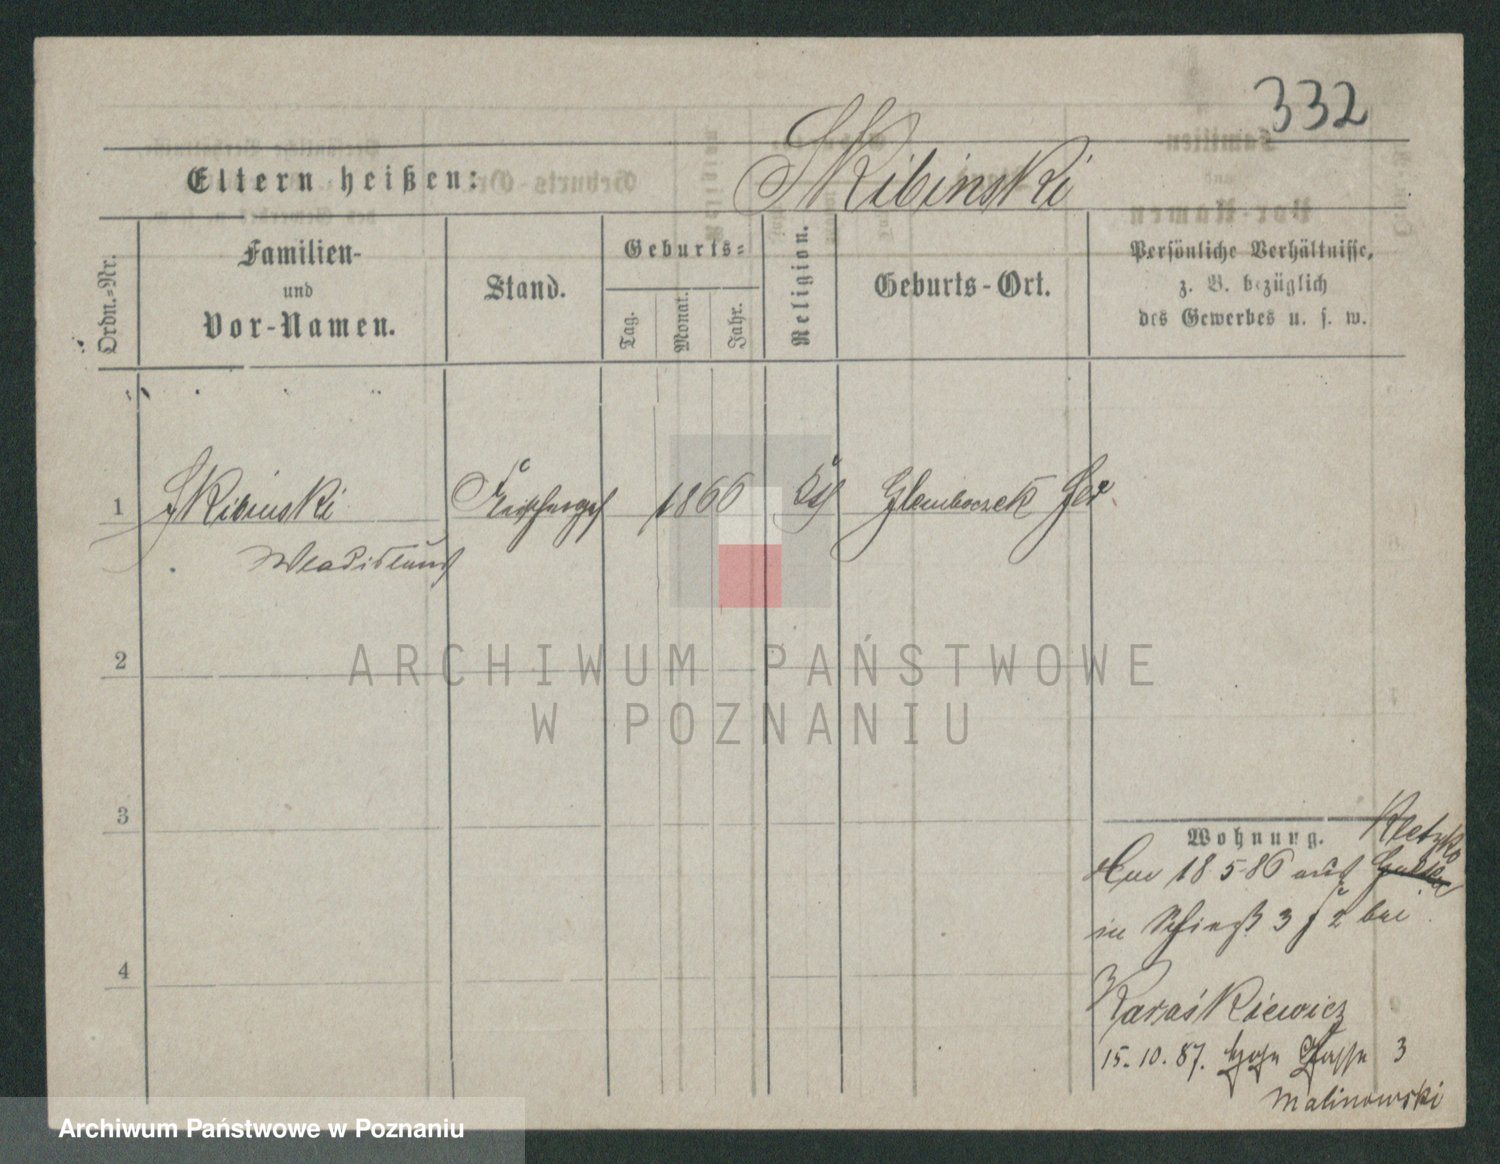 332
Eltern heißen: Skibinski
Ordn.-Nr.
Familien-
und
Vor-Namen.
Stand.
Geburts-
Tag.
Monat.
Jahr.
Religion.
Geburts-Ort.
Persönliche Verhältnisse,
z. B. bezüglich
des Gewerbes u. s. w.
1 Skibinski 1866 Glemboczek
Wladislaus
2
ARCHIWUM PAŃSTWOWE
W POZNANIU
3
Wohnung. Kletzko
18 5 86 aus
in 3 2 bei
4
Karaśkiewicz
15. 10. 87. Gasse 3
Malinowski
Archiwum Państwowe w Poznaniu